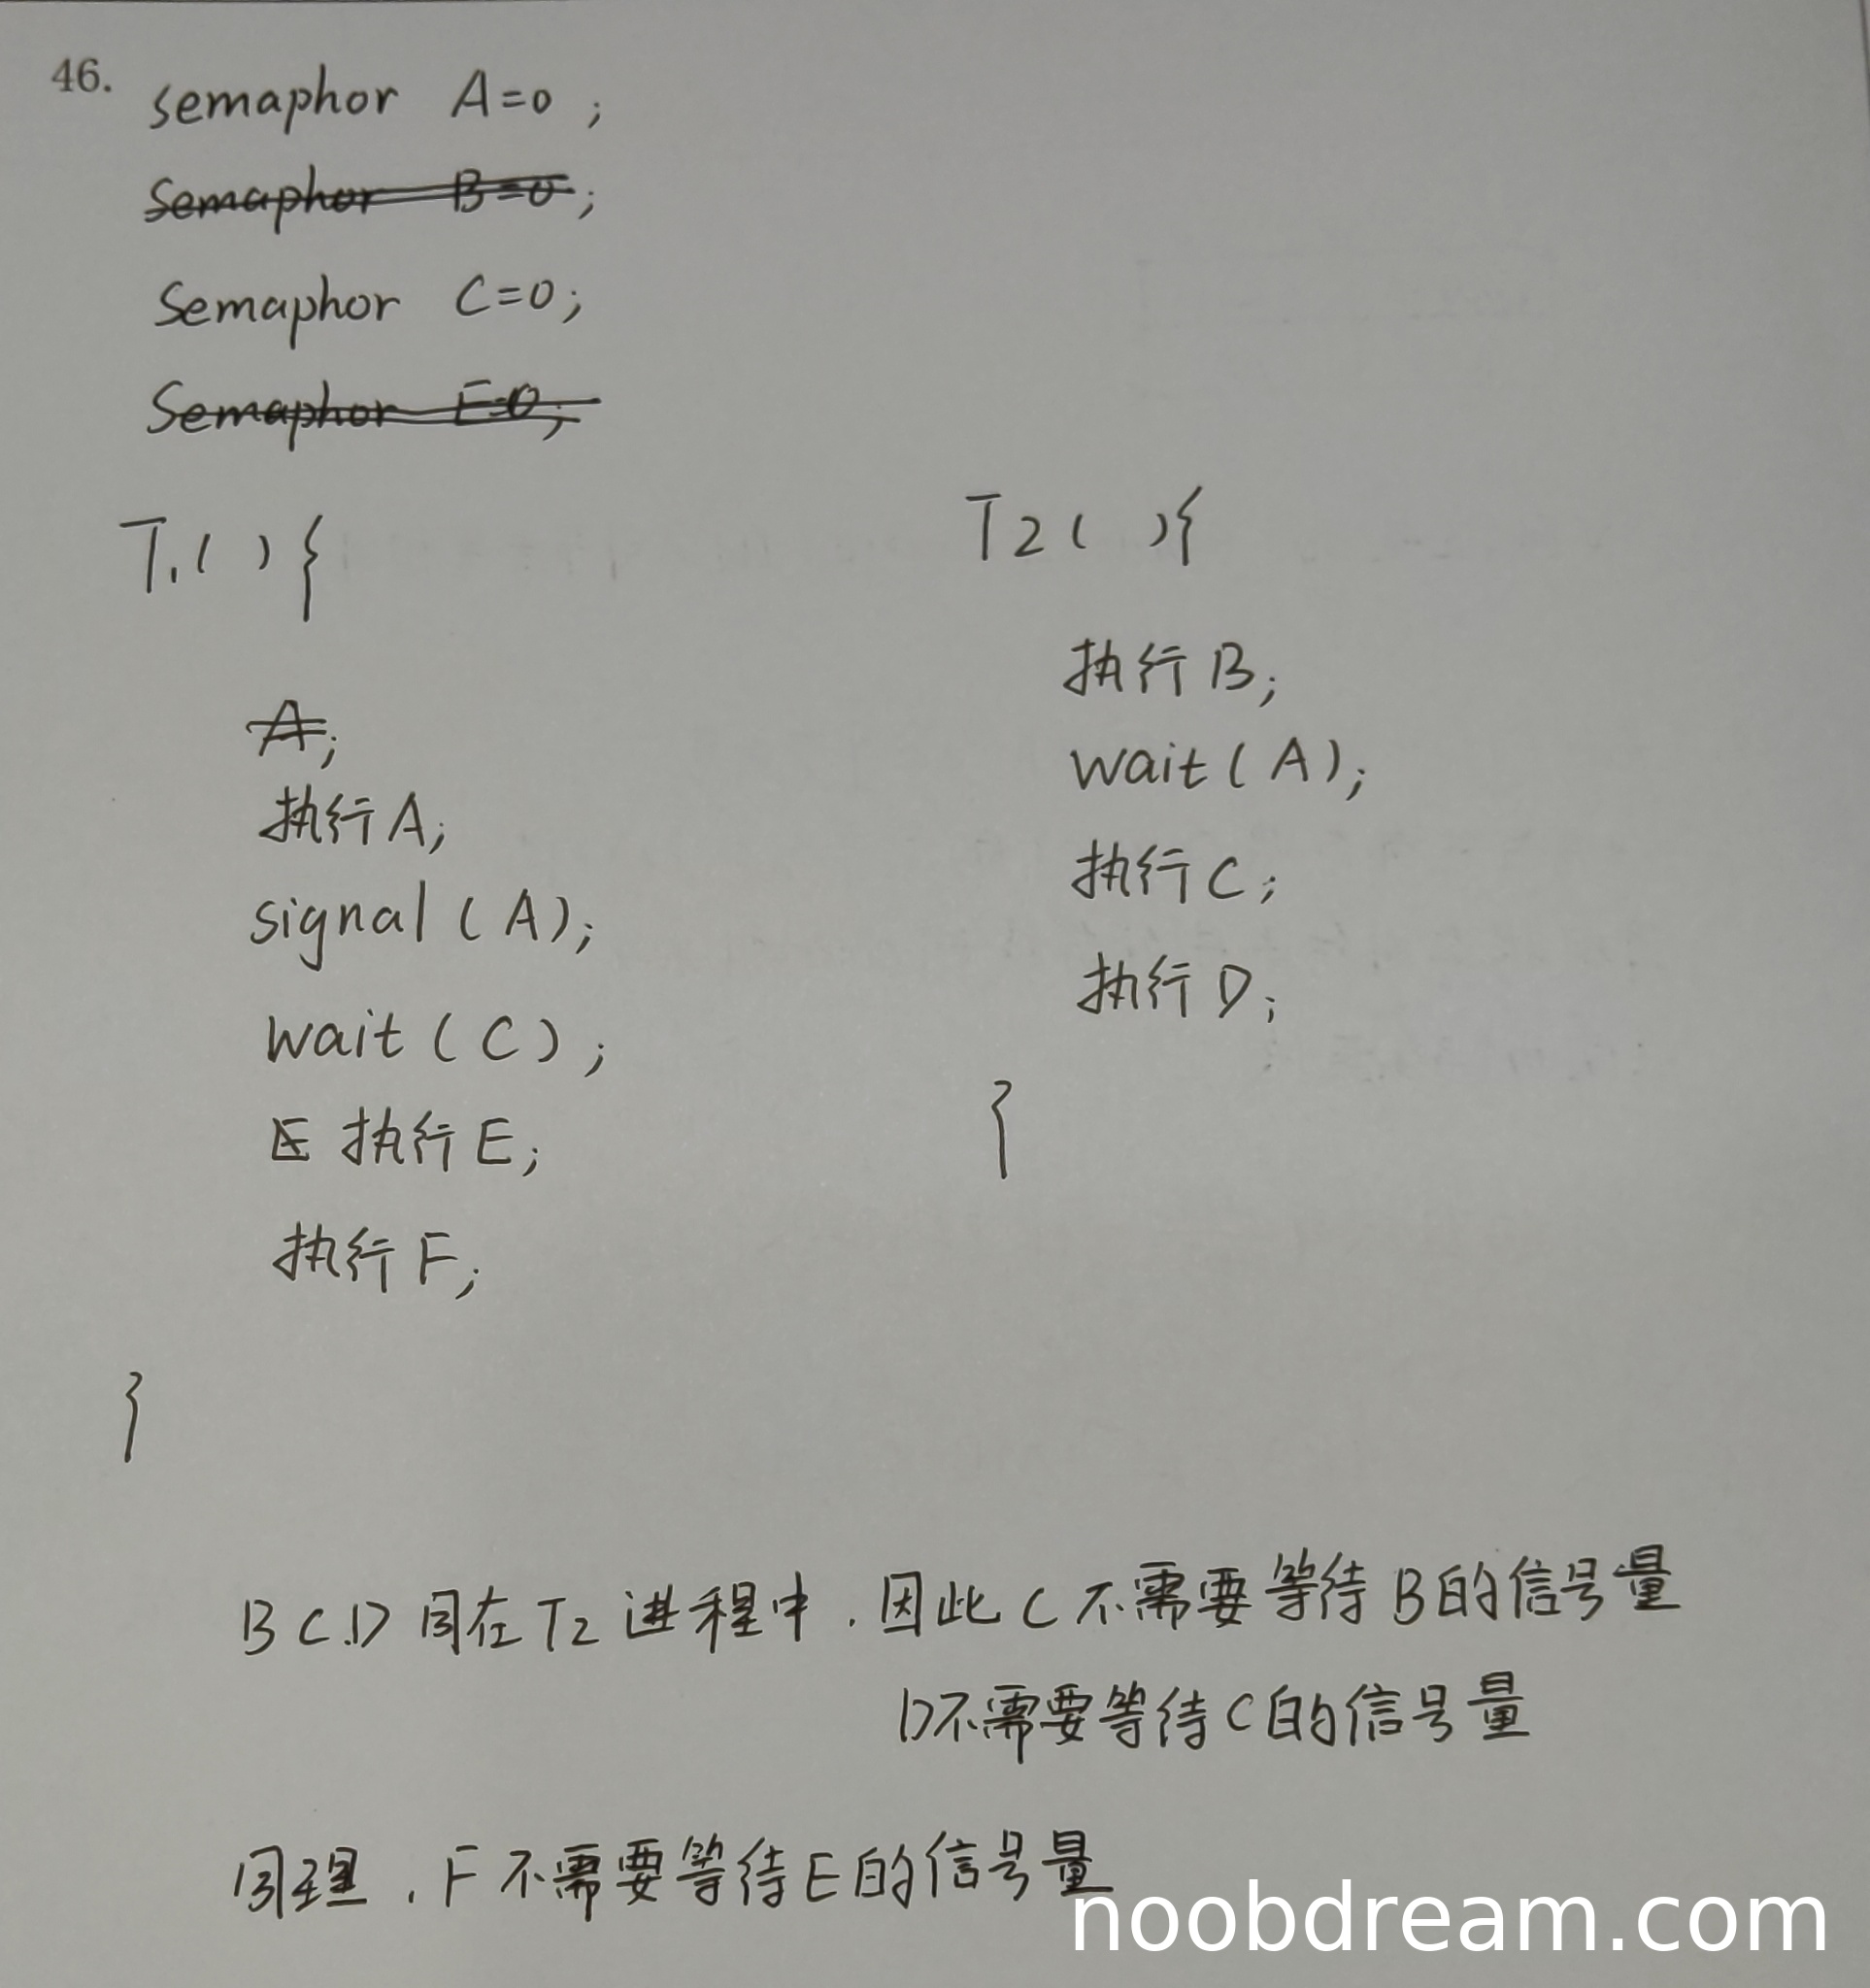 46.
semaphor A=0;
Semaphor B=0;
Semaphor C=0;
Semaphor E=0;
T1( ){
A;
执行A;
signal(A);
wait(C);
E 执行E;
执行F;
}
T2( ){
执行B;
wait(A);
执行C;
执行D;
}
B C.D 同在T2进程中.因此C不需要等待B的信号量
D不需要等待C的信号量
同理.F不需要等待E的信号量
noobdream.com